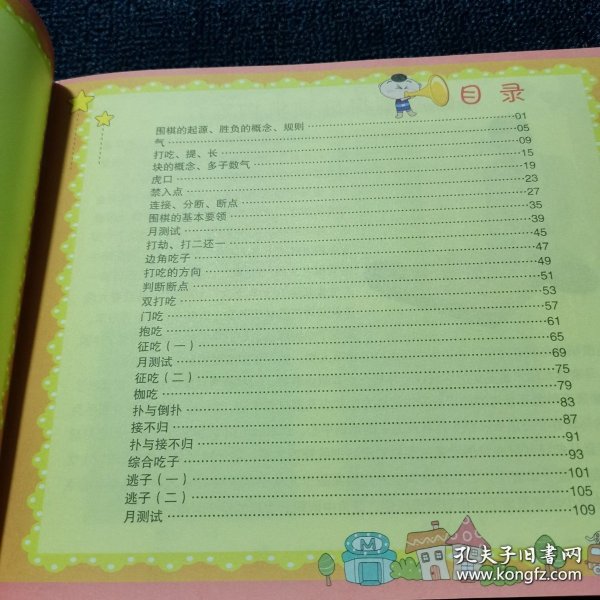 目录
围棋的起源、胜负的概念、规则……01
气……05
打吃、提、长……09
块的概念、多子数气……15
虎口……19
禁入点……23
连接、分断、断点……27
围棋的基本要领……35
月测试……39
打劫、打二还一……45
边角吃子……47
打吃的方向……49
判断断点……51
双打吃……53
门吃……57
抱吃……61
征吃（一）……65
月测试……69
征吃（二）……75
枷吃……79
扑与倒扑……83
接不归……87
扑与接不归……91
综合吃子……93
逃子（一）……101
逃子（二）……105
月测试……109
M
孔夫子旧书网
www.kongfz.com